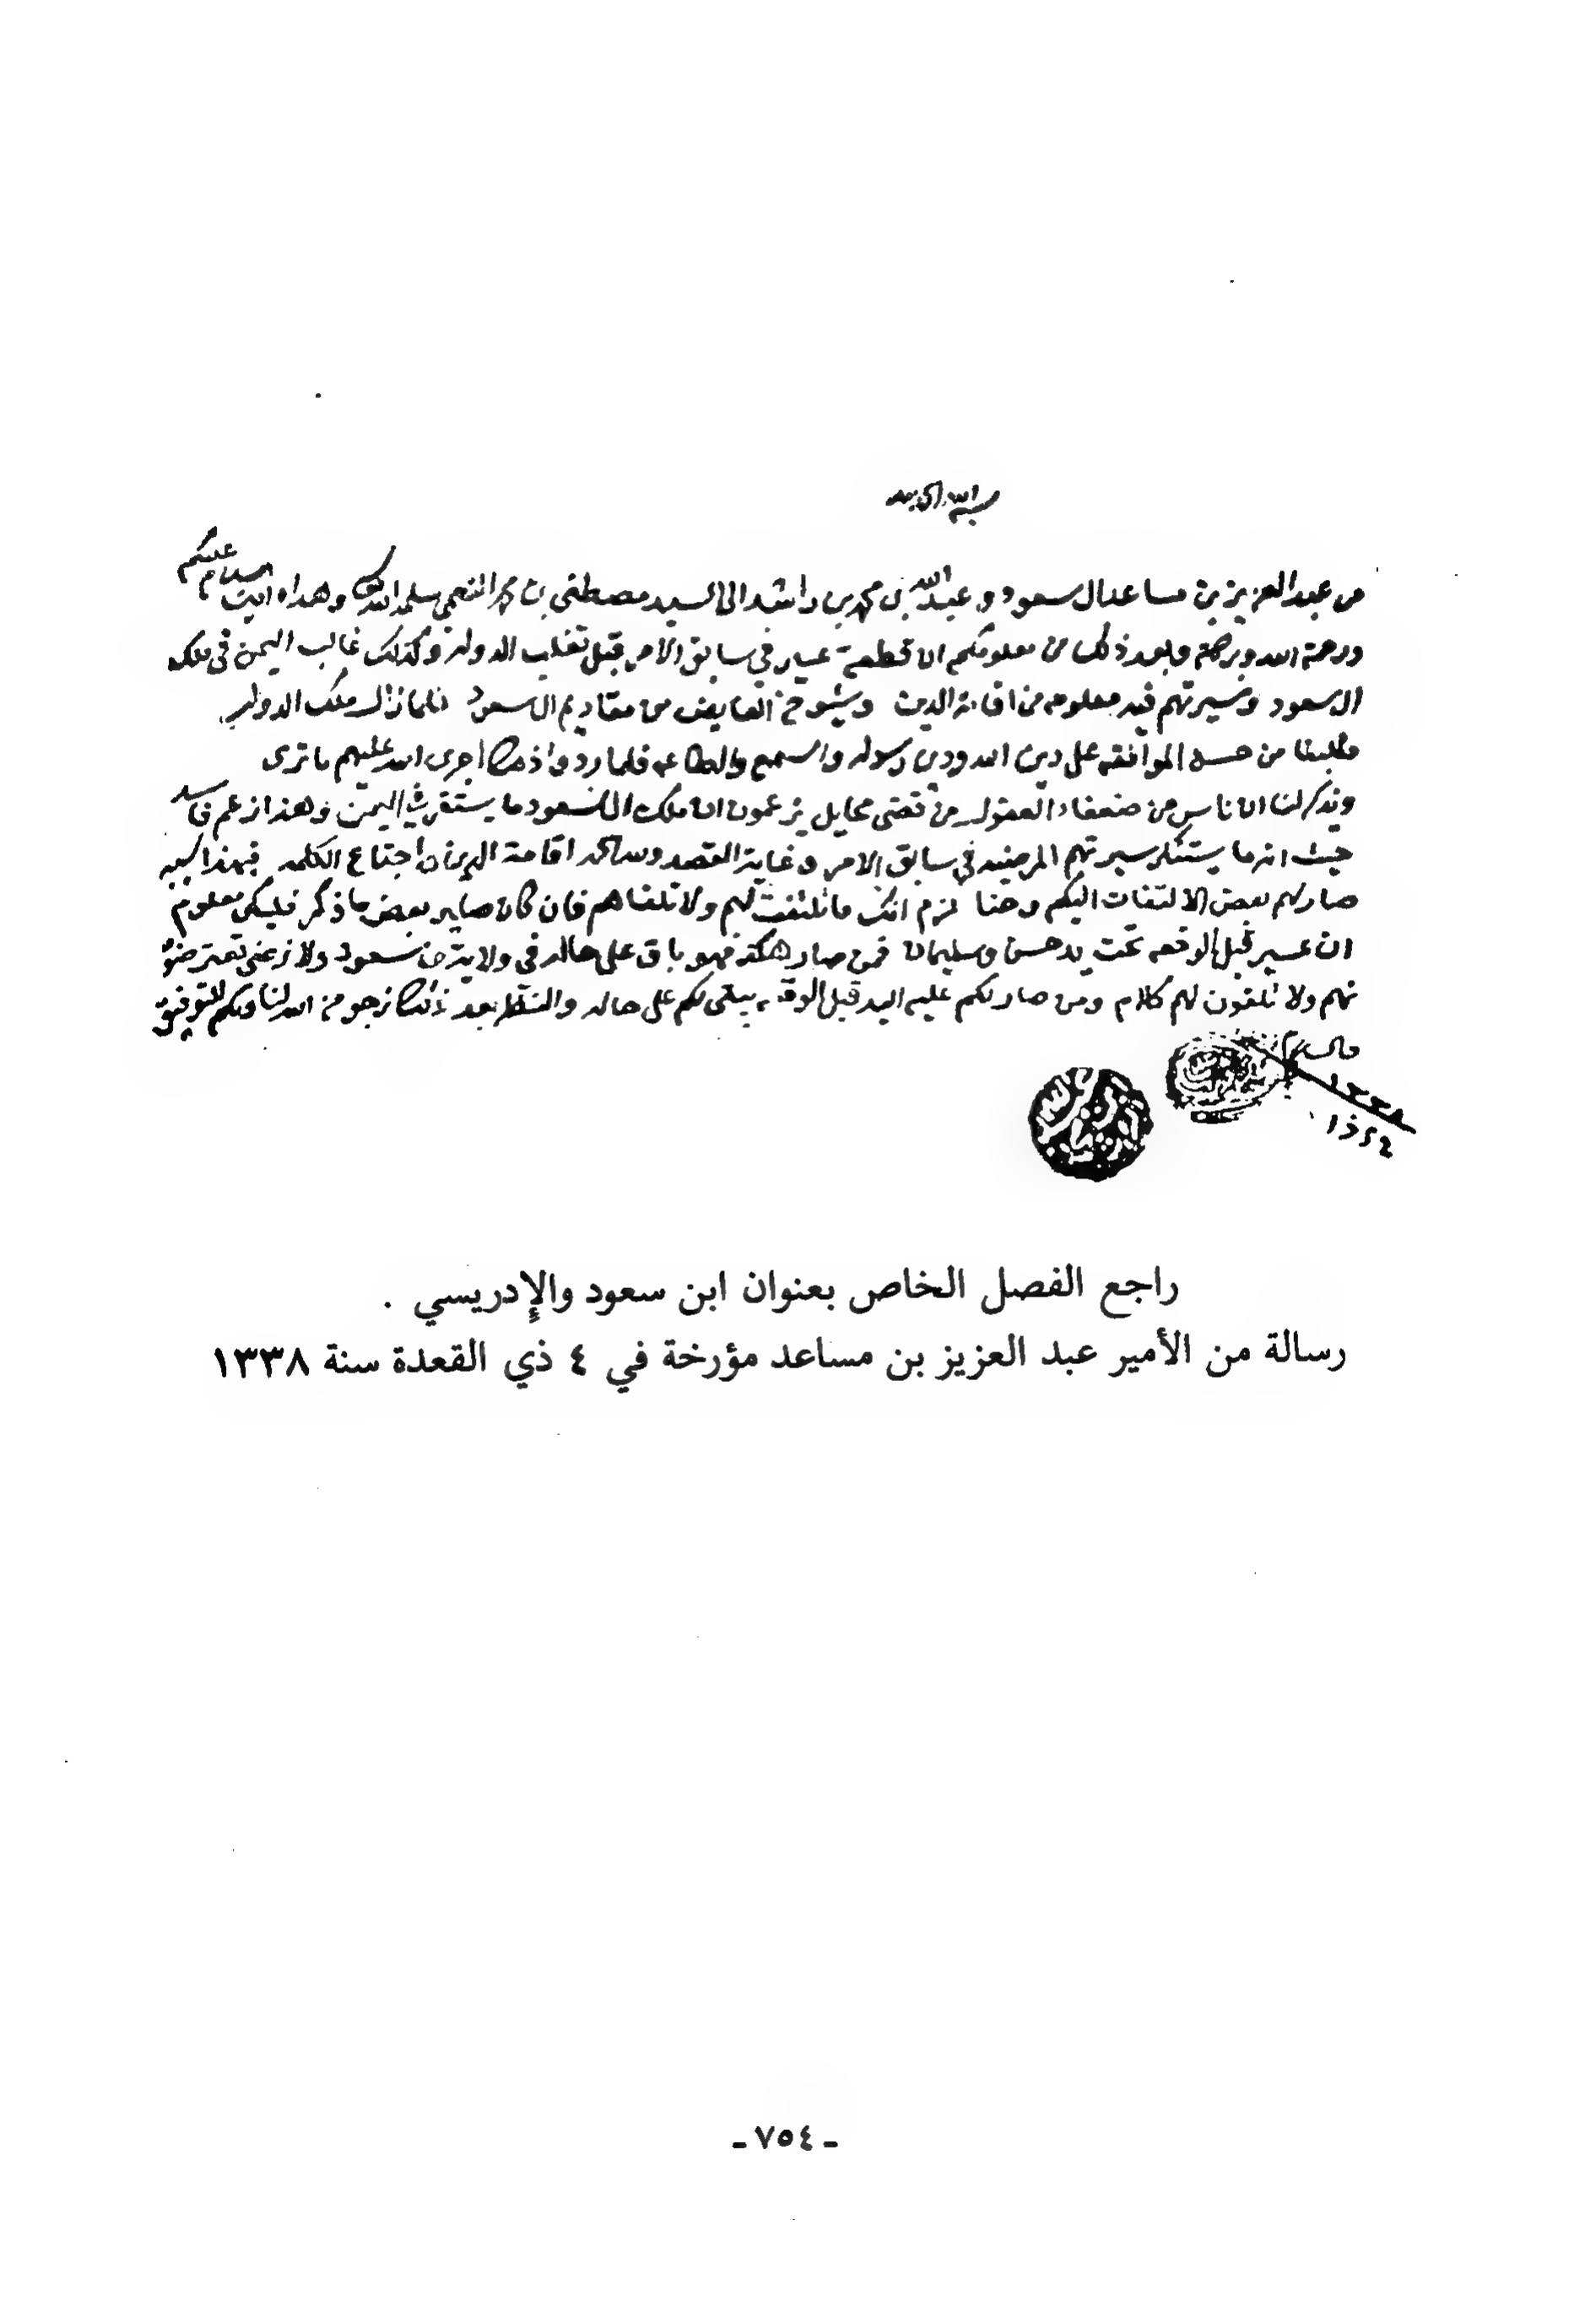 بسم الله الرحمن
من عبد العزيز بن مساعد ال سعود و عبد الله بن محمد بن راشد الى السيد مصطفى بن محمد النعمي سلمه الله وهداه امين السلام عليكم
ورحمة الله وبركاته وبعد ذلك من معلومكم ان قطعة عسير في سابق الامر قبل تغلب الدوله وكذلك غالب اليمن في ملك
ال سعود وسيرتهم فيه معلومه من اقامة الدين وشيوخ من مقاديم ال سعود فلما زال ملك الدوله
طلبنا من حسن الموافقه على دين الله ودين رسوله والسمع والطاعه فلما ردوا ذلك اجرى الله عليهم ما ترى
ويذكر لنا ان ناس من ضعفاء العقول من محايل يزعمون ان ملك ال سعود ما يستقر في اليمن وهذا زعم فاسد
حيث انه ما يستنكر سيرتهم المرضيه في سابق الامر وغاية القصد اقامة الدين واجتماع الكلمه فبهذا السبب
صار لهم بعض الالتفات اليكم وحنا نلزم انك ما تلتفت لهم ولا تلقاهم فان كان صاير بعض ما ذكر فليكن معلوم
ان عسير قبل الوقعه تحت يد حسن وسليمان فمن صار هكذا فهو باق على حاله في ولاية بن سعود ولا
ولا تلقون لهم كلام ومن صار لكم عليه اليد قبل الوقعه يبقى لكم على حاله والنظر بعد ذلك نرجو من الله لنا ولكم التوفيق
والسلام
١٣٣٨
٤ ذا
راجع الفصل الخاص بعنوان ابن سعود والإدريسي .
رسالة من الأمير عبد العزيز بن مساعد مؤرخة في ٤ ذي القعدة سنة ١٣٣٨
- ٧٥٤ -